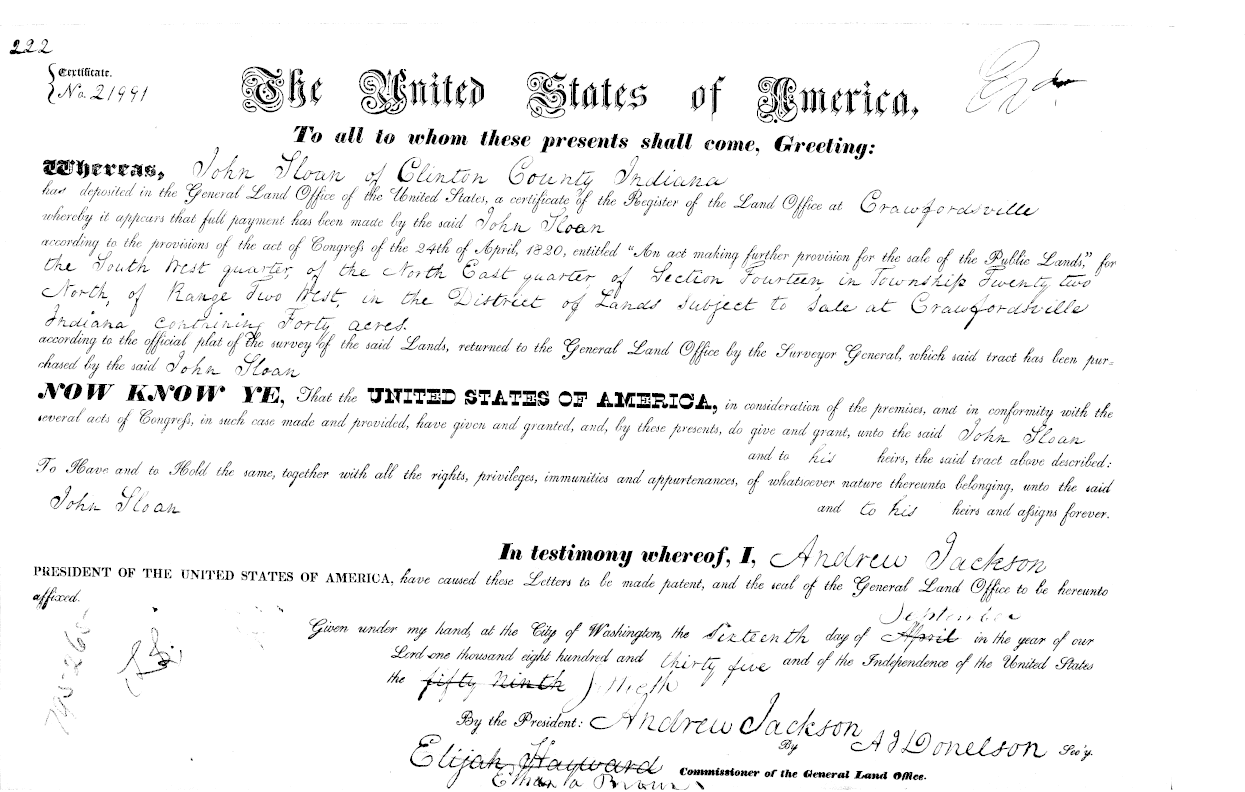 222
Certificate.
No. 21991
The United States of America,
To all to whom these presents shall come, Greeting:
Whereas, John Sloan of Clinton County Indiana
has deposited in the General Land Office of the United States, a certificate of the Register of the Land Office at Crawfordsville
whereby it appears that full payment has been made by the said John Sloan
according to the provisions of the act of Congress of the 24th of April, 1820, entitled "An act making further provision for the sale of the Public Lands," for
the South West quarter, of the North East quarter, of Section Fourteen, in Township Twenty two
North, of Range Two West, in the District of Lands Subject to Sale at Crawfordsville
Indiana containing Forty acres.
according to the official plat of the survey of the said Lands, returned to the General Land Office by the Surveyor General, which said tract has been pur-
chased by the said John Sloan
NOW KNOW YE, That the UNITED STATES OF AMERICA, in consideration of the premises, and in conformity with the
several acts of Congress, in such case made and provided, have given and granted, and, by these presents, do give and grant, unto the said John Sloan
and to his heirs, the said tract above described:
To Have and to Hold the same, together with all the rights, privileges, immunities and appurtenances, of whatsoever nature thereunto belonging, unto the said
John Sloan and to his heirs and assigns forever.
In testimony whereof, I, Andrew Jackson
PRESIDENT OF THE UNITED STATES OF AMERICA, have caused these Letters to be made patent, and the seal of the General Land Office to be hereunto
affixed.
September
Given under my hand, at the City of Washington, the Sixteenth day of April in the year of our
Lord one thousand eight hundred and thirty five and of the Independence of the United States
the fifty Ninth
By the President: Andrew Jackson
By A J Donelson Sec'y.
Elijah Hayward Commissioner of the General Land Office.
Brown